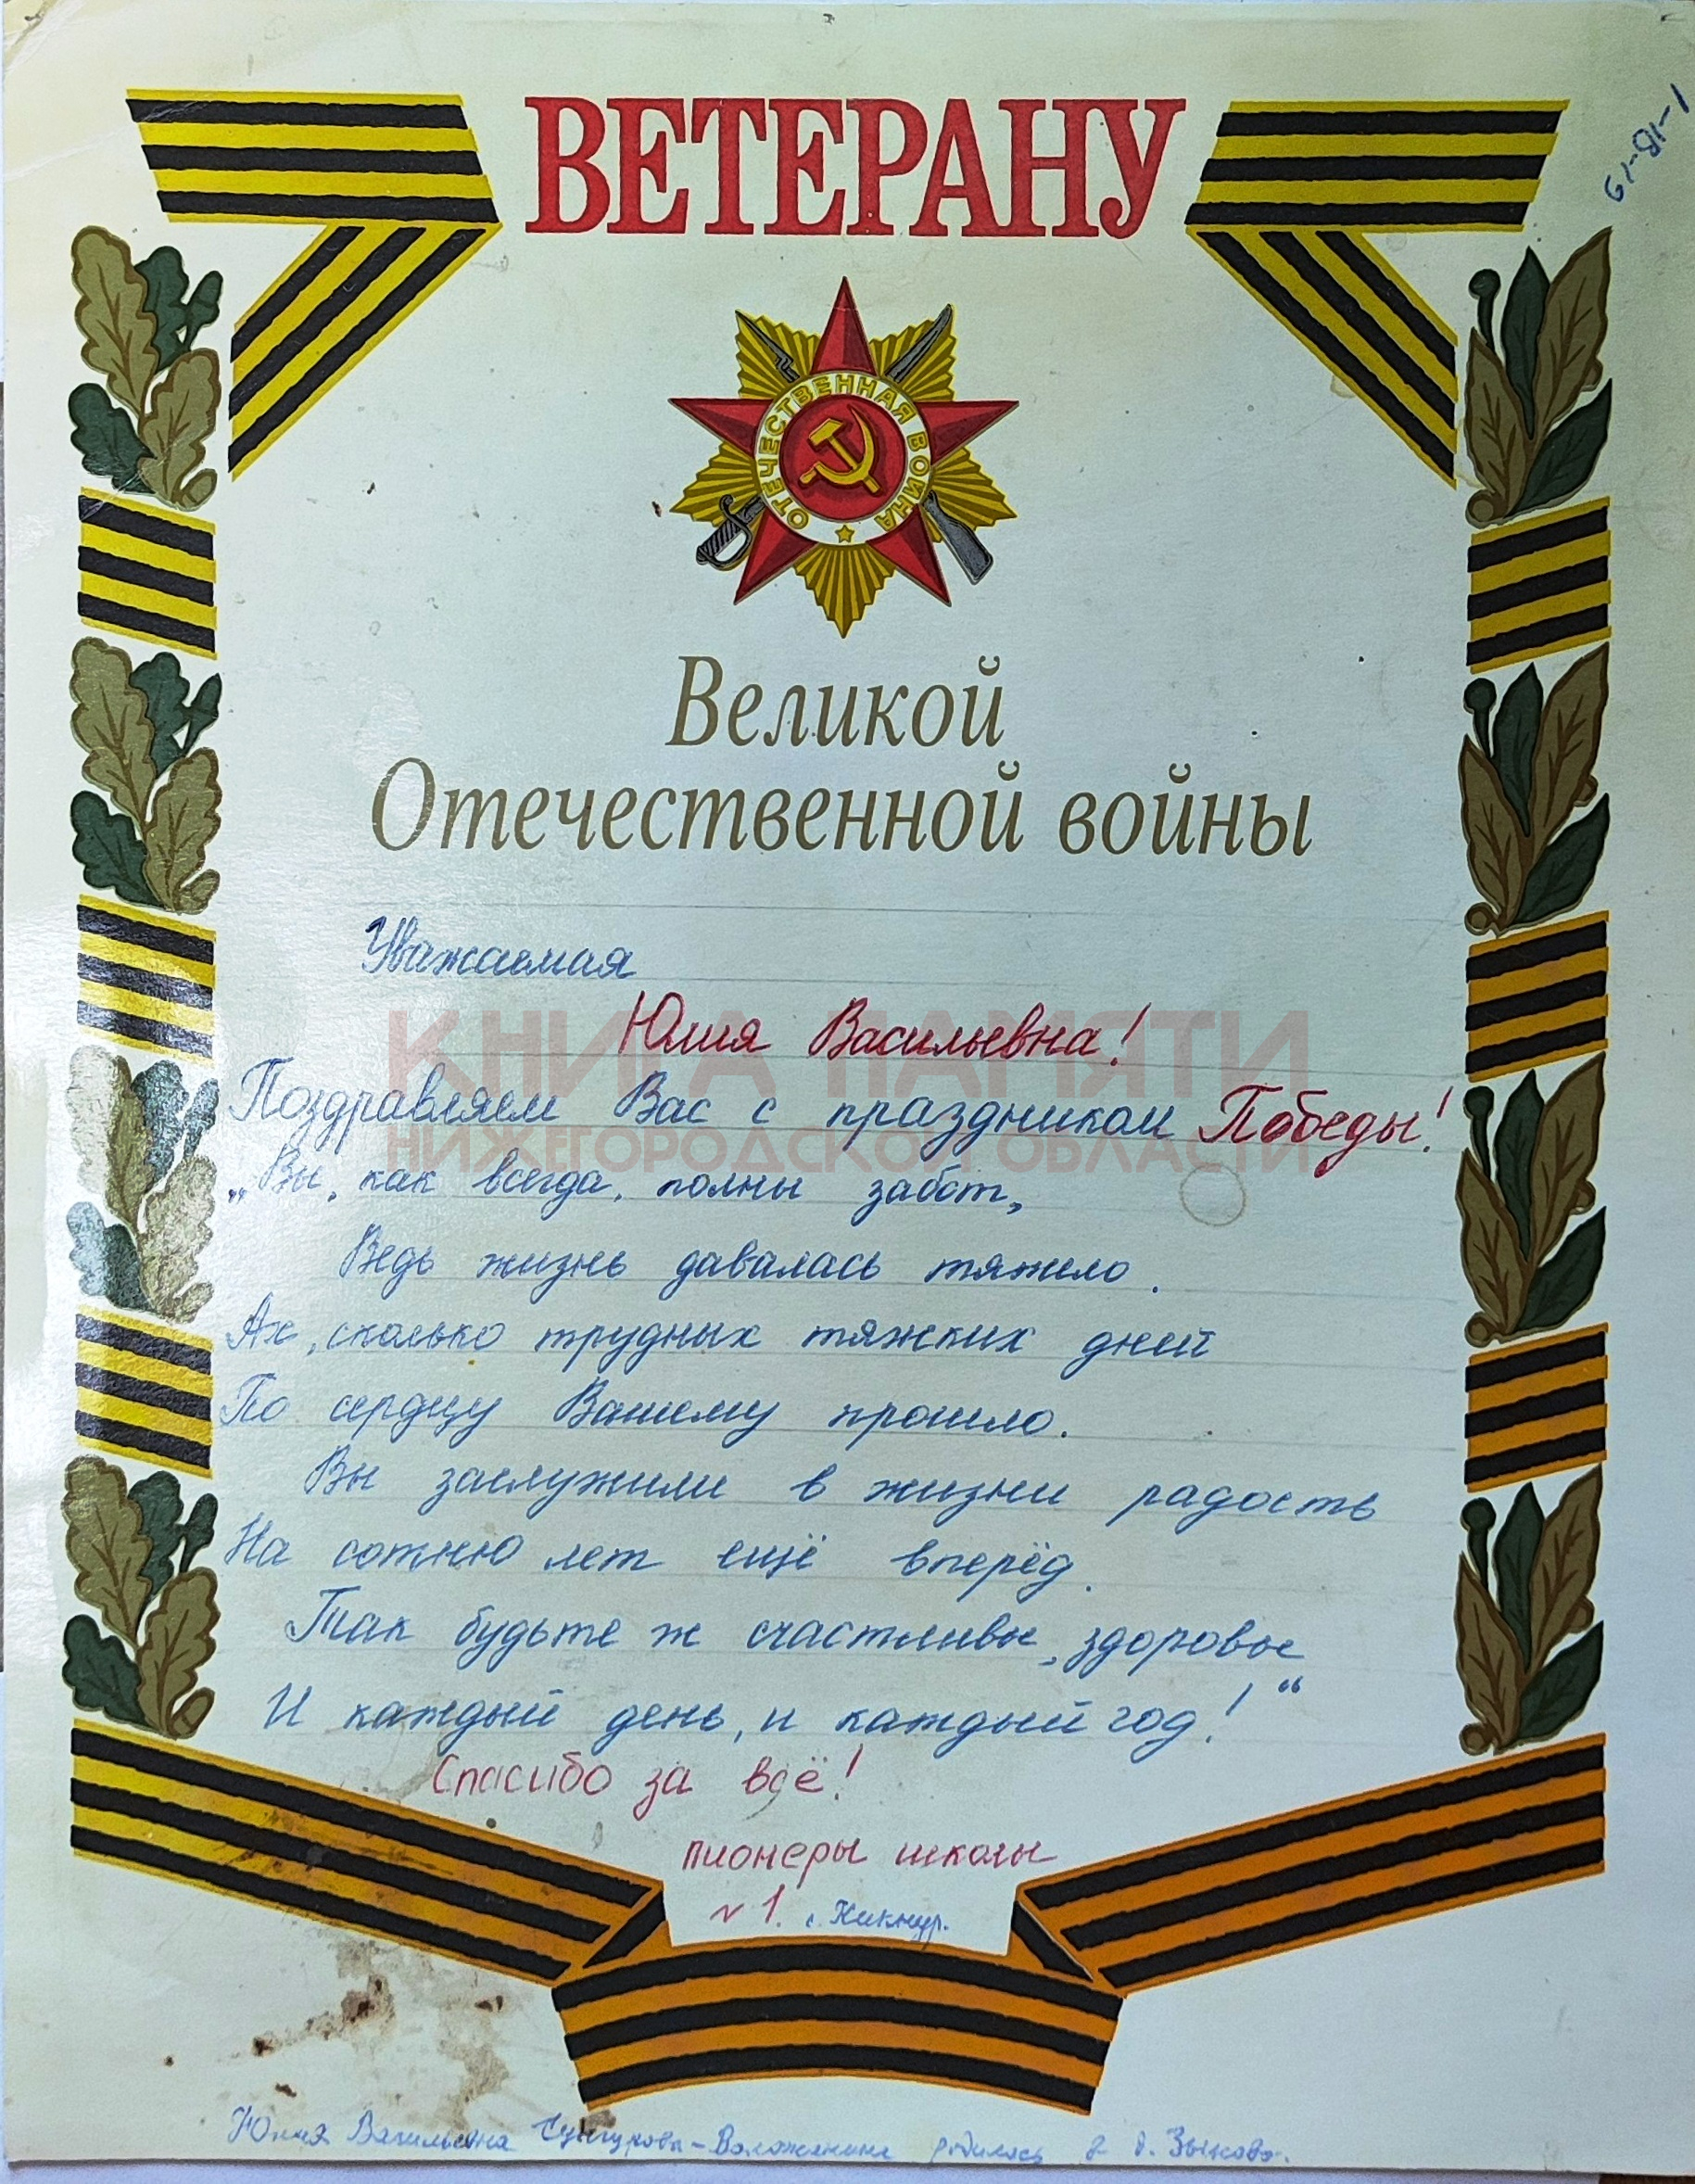 ВЕТЕРАНУ
1-18-19
ОТЕЧЕСТВЕННАЯ ВОЙНА
Великой
Отечественной войны
Уважаемая
Юлия Васильевна!
КНИГА ПАМЯТИ
НИЖЕГОРОДСКОЙ ОБЛАСТИ
Поздравляем Вас с праздником Победы!
„Вы, как всегда, полны забот,
Ведь жизнь давалась тяжело.
Ах, сколько трудных тяжких дней
По сердцу Вашему прошло.
Вы заслужили в жизни радость
На сотню лет ещё вперёд.
Так будьте ж счастливы, здоровы
И каждый день, и каждый год!“
Спасибо за всё!
пионеры школы
№ 1. с. Кикнур.
Юлия Васильевна родилась в д. Зыково.